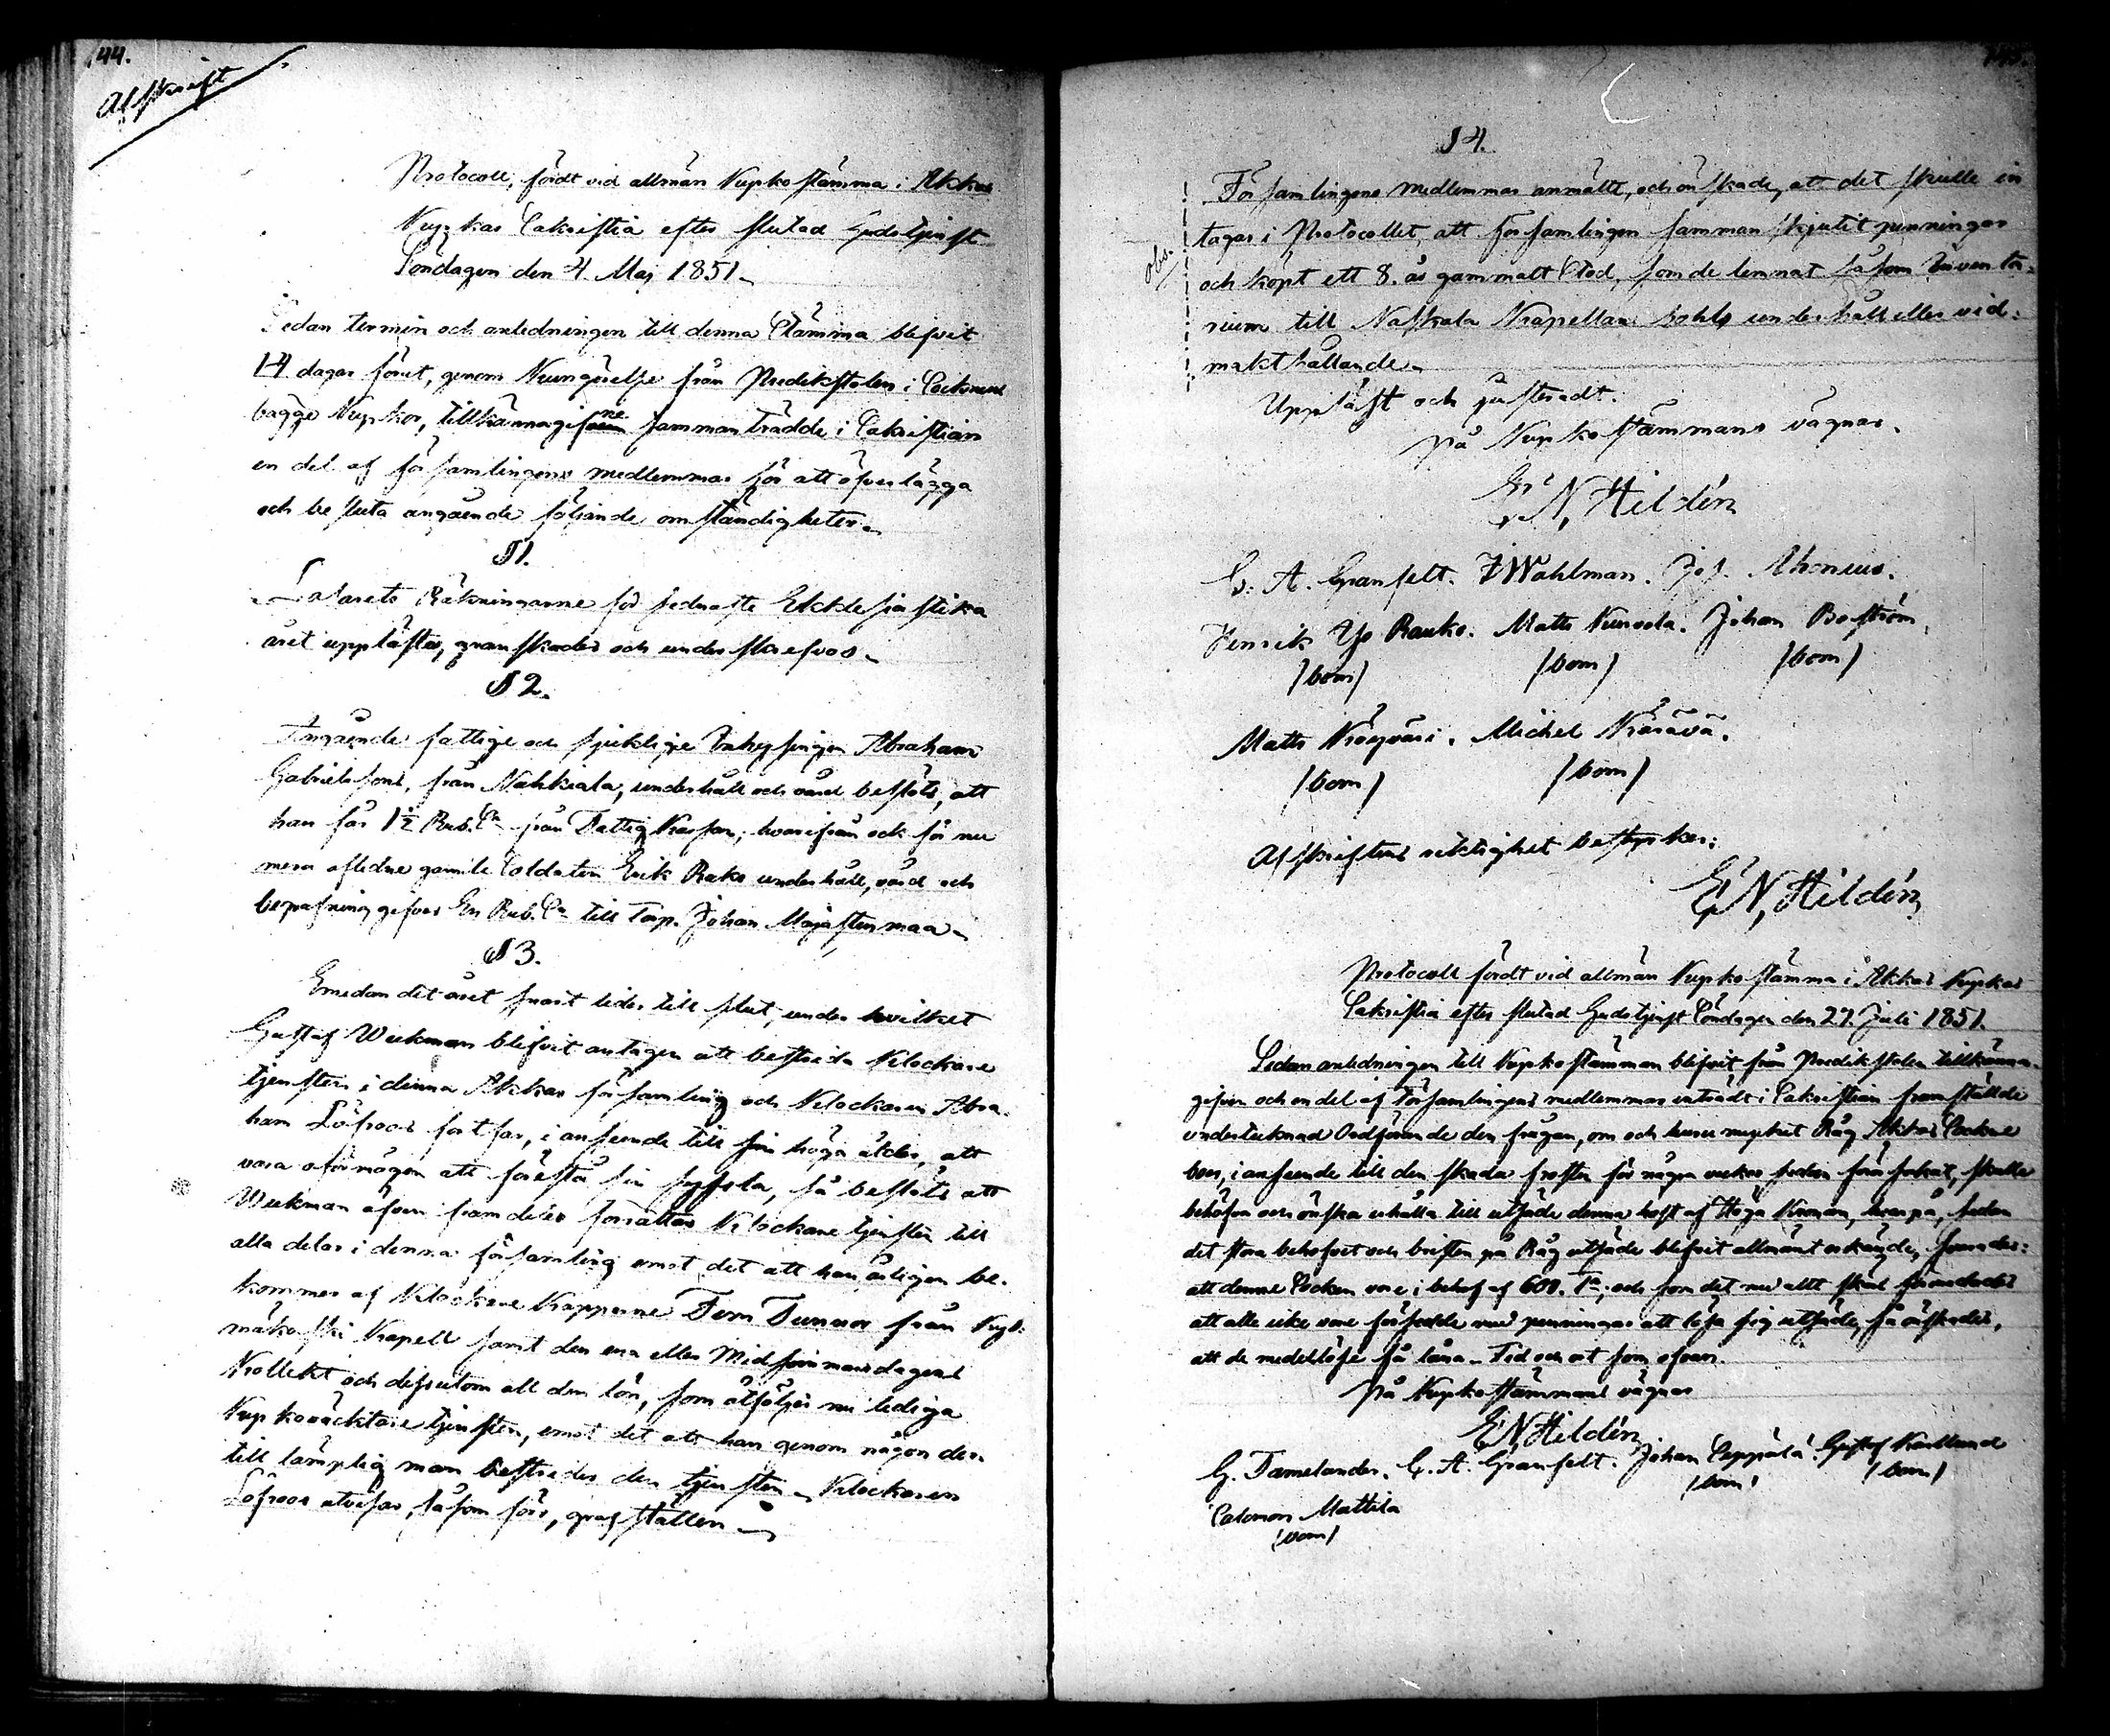 144.
Afskrift
Protocoll, fördt vid allmän Kyrkostämma i Akkas
Kyrkas Sakristia efter slutad Gudstjenst
Söndagen den 4 Maj 1851.
Sedan termin och anledningen till denna Stämma blifvit
14 dagar förut, genom Kungörelse från Predikstolen i Socknens
bägge Kyrkor, tillkännagifne sammanträdde i Sakristian
en del af församlingens medlemmar för att öfverlägga
och besluta angående följande omständigheter.
§1.
Räkningarne för sednaste Ekklesiastika
året upplästes, granskades och underskrefvos.
§2.
Angående fattige och sjuklige Inhysingen Abraham
Gabrielssons, från Nahkiala, underhåll och vård beslöts, att
han får 1½ Rub. Sr från Fattig Kassan, hvarifrån ock för nu
mera aflidne gamle Soldaten Erik Raks underhåll, vård och
begrafning gifves En Rub. Sr till Torp. Johan Majastenmaa.
§3.
Emedan det året snart lider till slut, under hvilket
Gustaf Weckman blifvit antagen att bestrida Klockare
tjensten i denna Akkas församling och Klockaren Abra-
ham Löfroos fortfar, i anseende till sin höga ålder, att
vara oförmögen att förestå sin syssla, så beslöts att
Weckman äfven framdeles förrättar Klockare tjensten till
alla delar i denna församling emot det att han årligen be-
kommer af Klockare Kapparne Fem Tunnor från
Kapell samt den ena eller Midsommarsdagens
Kollekt och dessutom all den lön, som åtföljer nu lediga
Kyrkovacktare tjensten, emot det att han genom någon der-
till lämplig man bestrider den tjensten. Klockaren
Löfroos utvisar, såsom förr, grafställen.
§4.
Församlingens medlemmar anmälte, och önskade, att det skulle in
tagas i Protocollet, att församlingen sammanskjutit penningar
och köpt ett 8. år gammalt Stod, som de lemnat såsom Inventa-
rium till Kapellans underhåll eller vid-
makthållande.
Obs.
Uppläst och justeradt.
På Kyrkostämmans vägnar.
Er N, Hildén
G. A. Granfelt. F Wahlman. Jos. Ahonius.
Henrik Yo Rauko. Matts Kurvola. Johan Boström.
/bom/ /bom/ /bom/
Matts . Michel .
/bom/ /bom/
Afskriftens riktighet bestyrker:
Er N, Hildén
Protocoll fördt vid allmän Kyrkostämma i Akkas Kyrkas
Sakristia efter slutad Gudstjenst Söndagen den 27. Juli 1851.
Sedan anledningen till Kyrkostämman blifvit från Predikstolen tillkänna-
gifven och en del af Församlingens medlemmar inträdt i Sakristian framställde
undertecknad Ordförande den frågan, om och huru mycket Råg Akkas Sockne
boer, i anseende till den skada frosten för några veckor sedan förorsakat, skulle
behöfva och önska erhålla till utsäde denna höst af Höga Kronan, hvarpå, sedan
det stora behofvet och bristen på Råg utsäde blifvit allmänt erkändt,
att denna Socken vore i behof af 600. Tr, och som det med allt skäl förmodades
att alla icke vore försedde med penningar att lösa sig utsäde, så önskades,
att de medellöse få låna. Tid och ort som ofvan.
På Kyrkostämmans vägnar
Er N, Hildén
G. Tamelander. G. A. Granfelt. Johan Seppälä. Gustaf
/bom/ /bom/
Salomon Mattila
/bom/